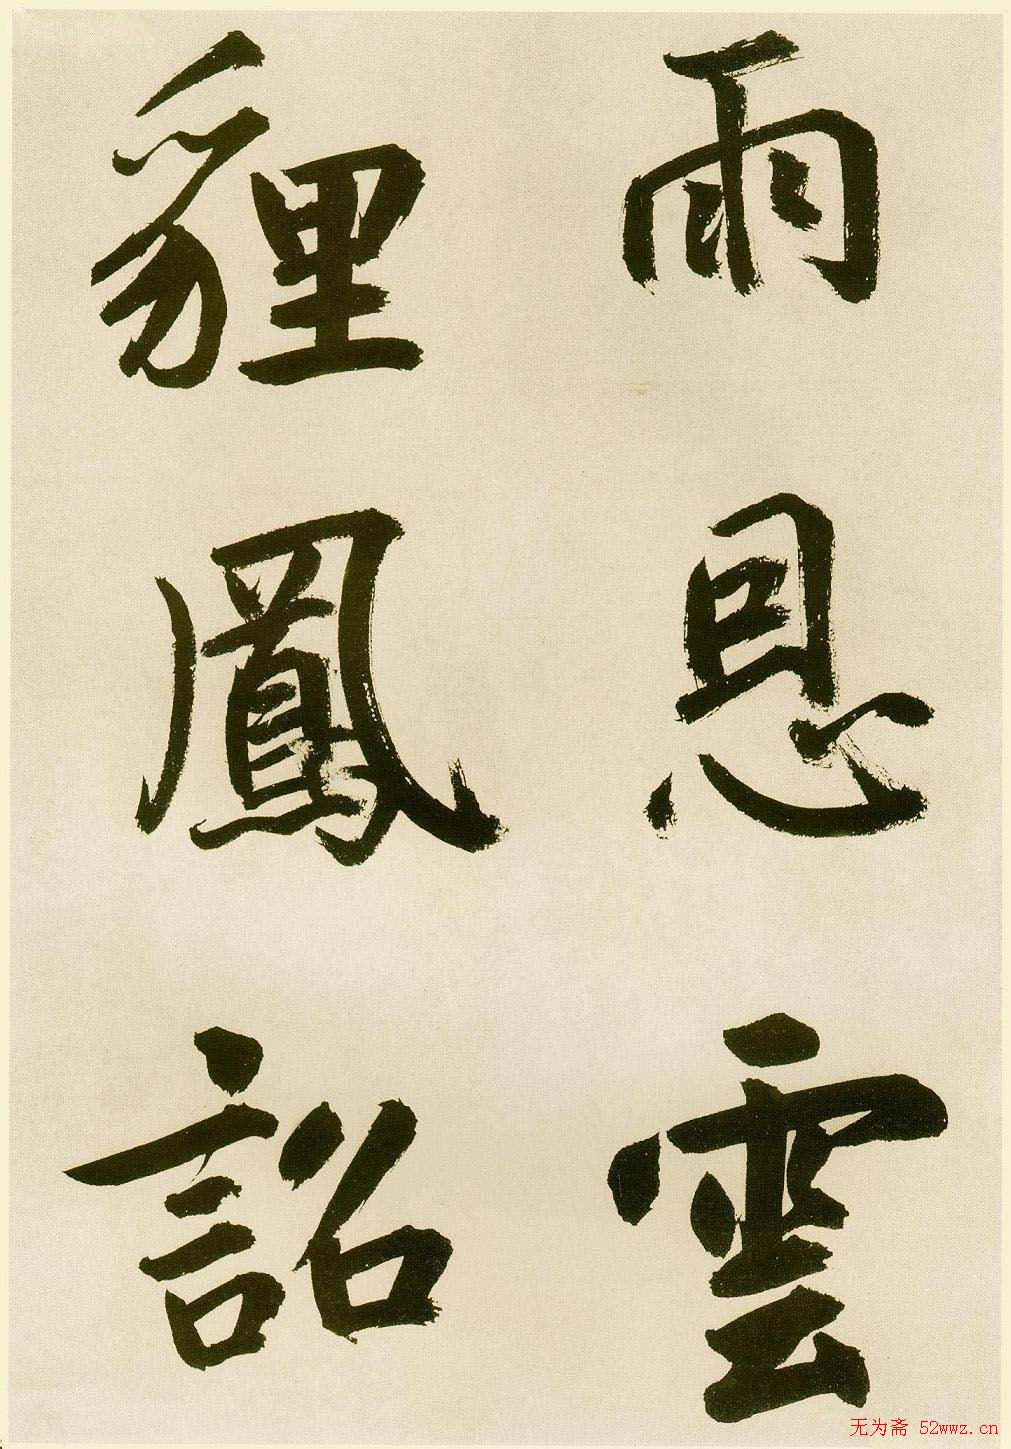 雨恩雲
貍鳳詔
无为斋 52wwz.cn